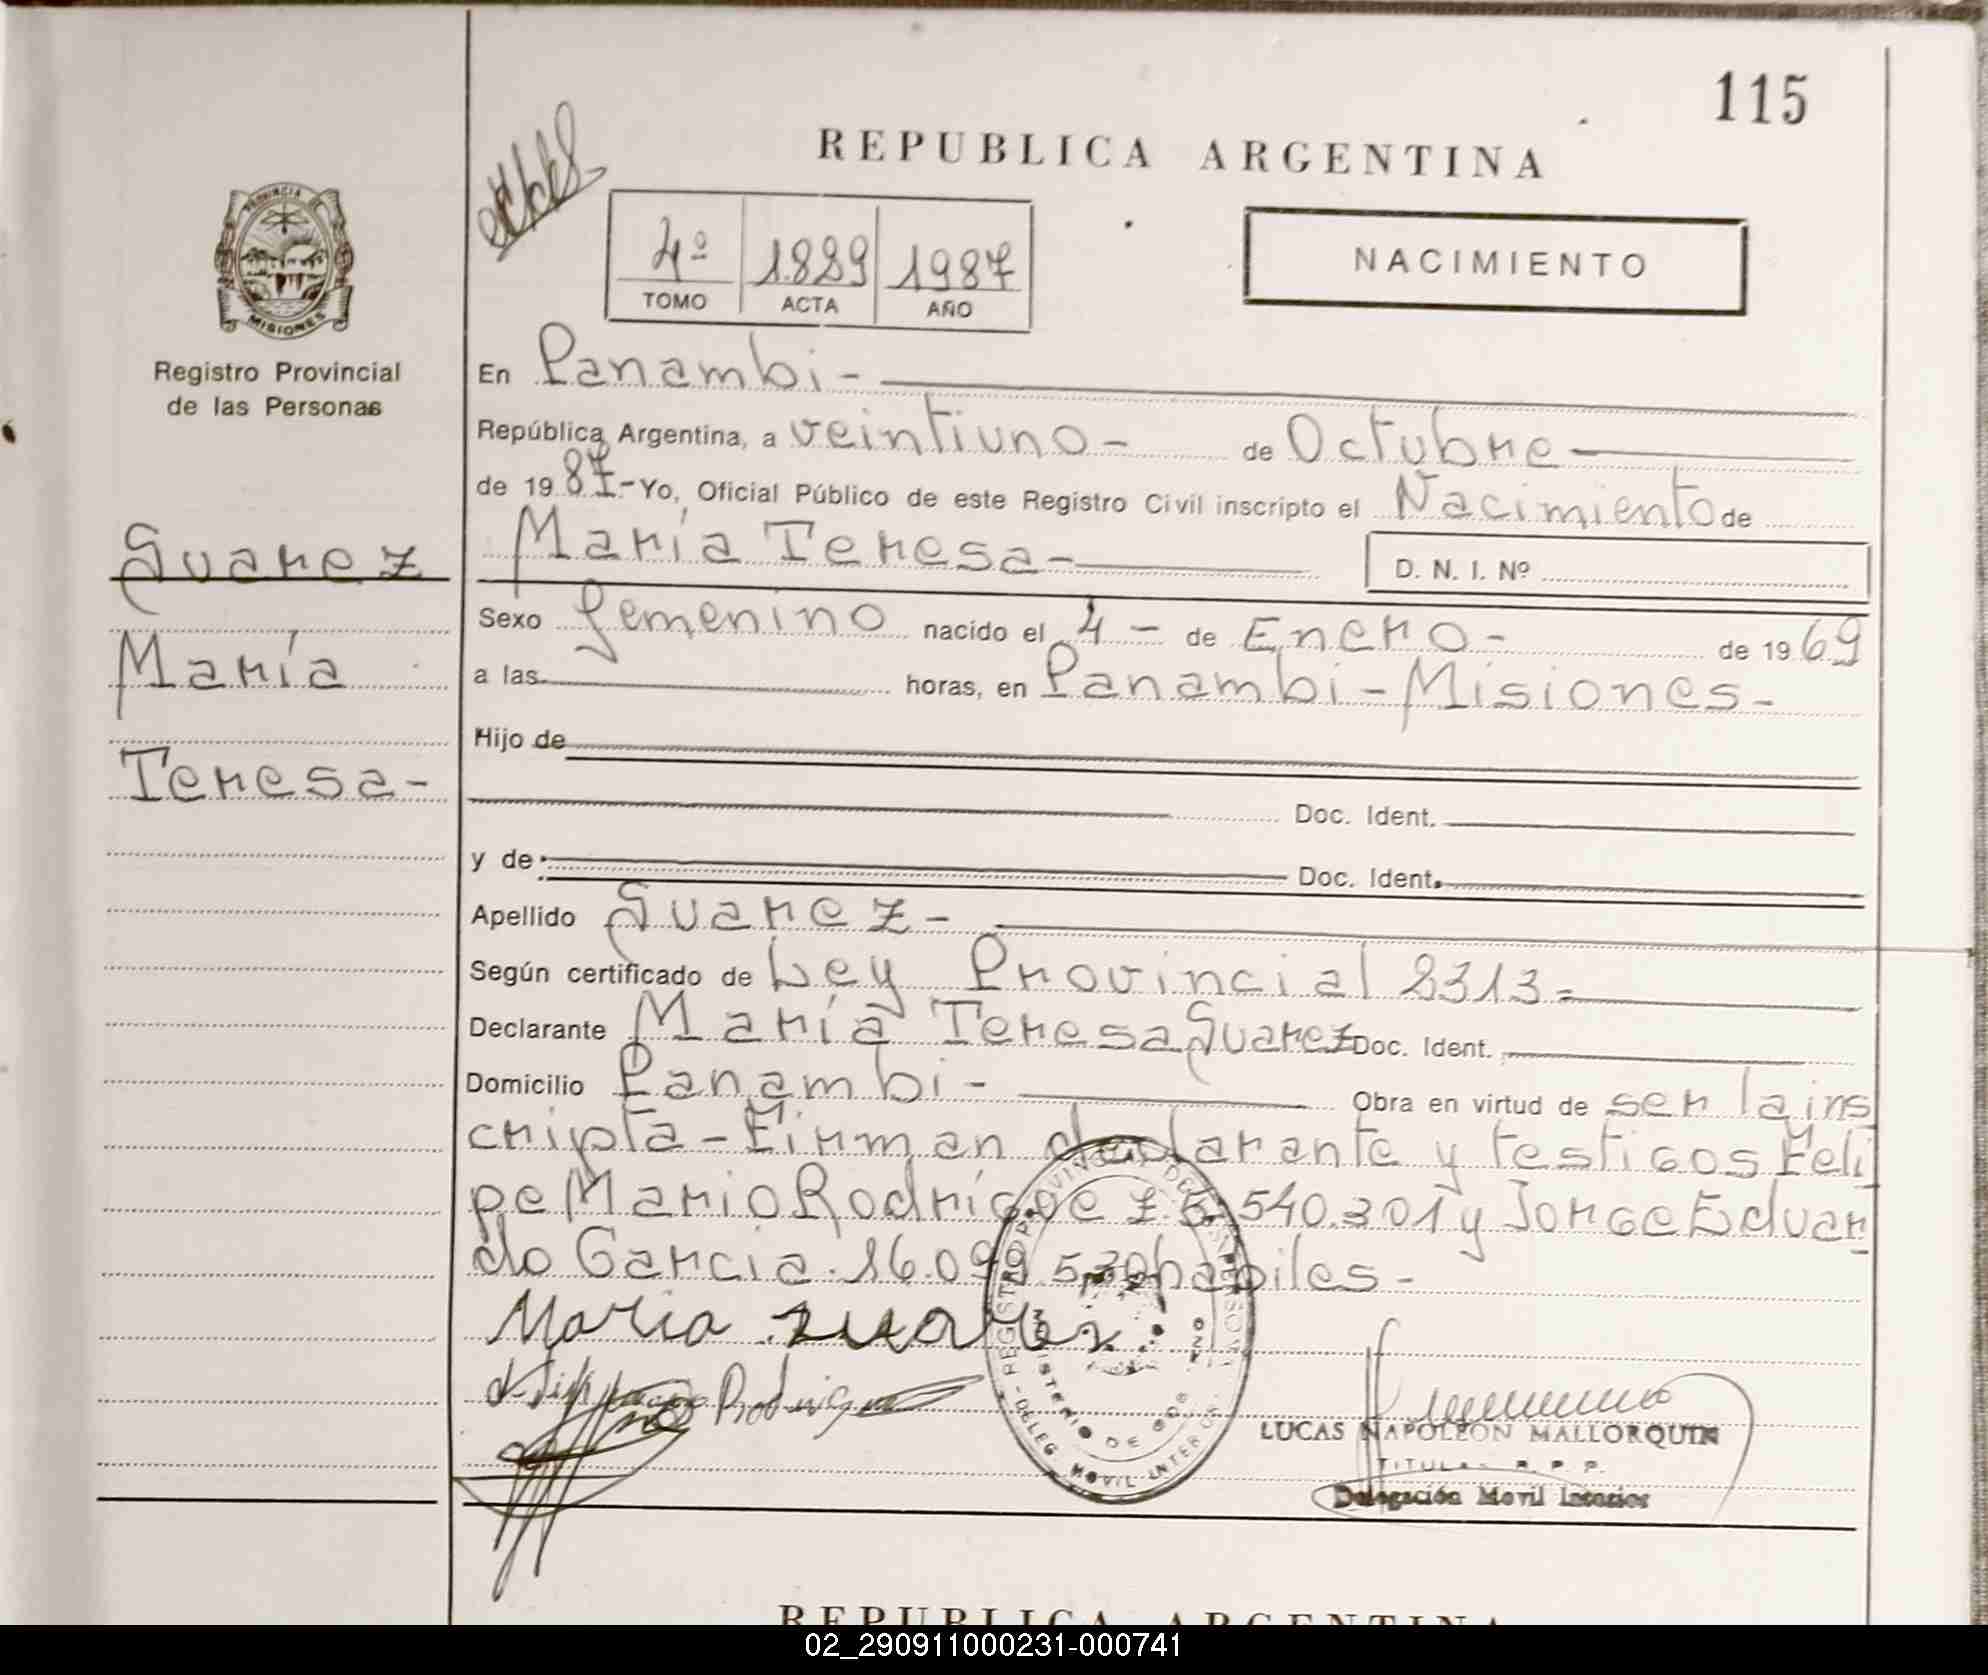 115
REPUBLICA ARGENTINA
4º 1.889 1987
TOMO ACTA AÑO
NACIMIENTO
PROVINCIA DE
MISIONES
Registro Provincial
de las Personas
Suarez
María
Teresa-
En Panambi-
República Argentina, a veintiuno- de Octubre
de 19 87- Yo, Oficial Público de este Registro Civil inscripto el Nacimiento de
María Teresa- D. N. I. Nº
Sexo femenino nacido el 4- de Enero- de 19 69
a las horas, en Panambi-Misiones-
Hijo de
Doc. Ident.
y de Doc. Ident.
Apellido Suarez-
Según certificado de Ley Provincial 2313-
Declarante María Teresa Suarez Doc. Ident.
Domicilio Panambi- Obra en virtud de ser la ins
cripta-Firman declarante y testigos Feli
pe Mario Rodríguez. 540.301 y Jorge Eduar
do Garcia. habiles-
Maria zuarez
Rodrigue
LUCAS NAPOLEON MALLORQUIN
TITULAR R. P. P.
Delegación Movil Interior
REPUBLICA ARGENTINA
02_290911000231-000741